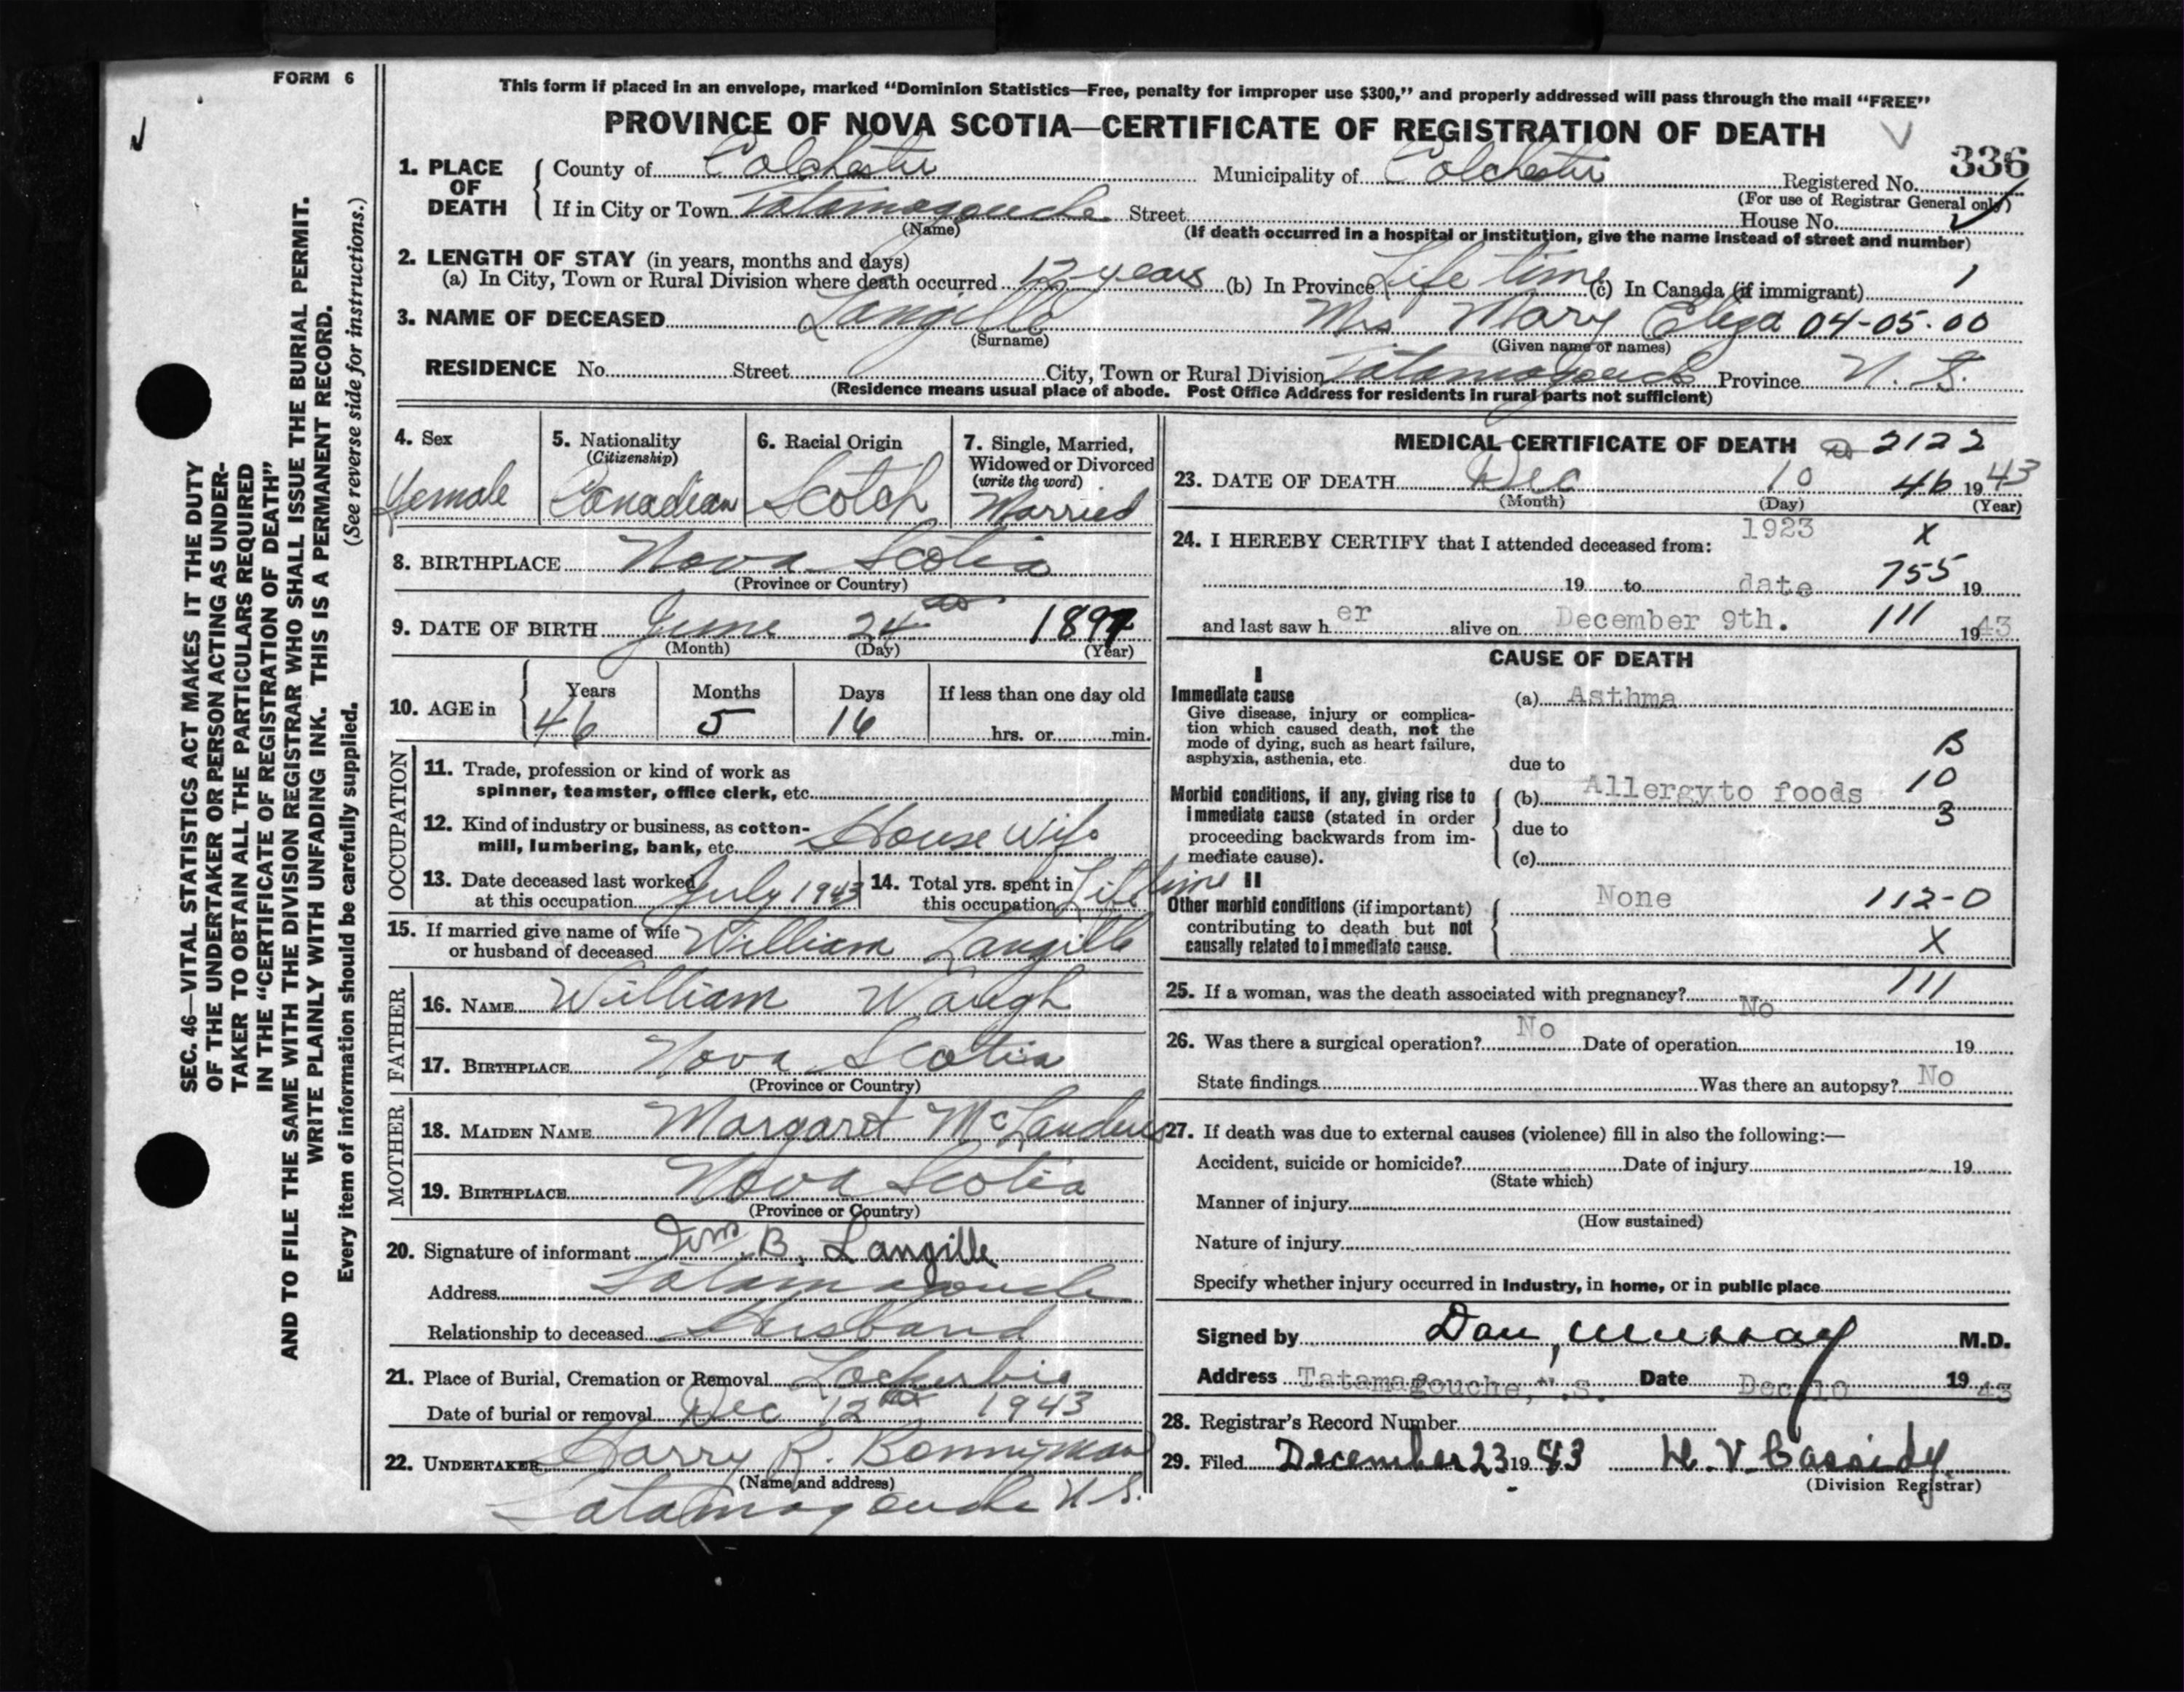 FORM 6
SEC. 46—VITAL STATISTICS ACT MAKES IT THE DUTY
OF THE UNDERTAKER OR PERSON ACTING AS UNDER-
TAKER TO OBTAIN ALL THE PARTICULARS REQUIRED
IN THE "CERTIFICATE OF REGISTRATION OF DEATH"
AND TO FILE THE SAME WITH THE DIVISION REGISTRAR WHO SHALL ISSUE THE BURIAL PERMIT.
WRITE PLAINLY WITH UNFADING INK. THIS IS A PERMANENT RECORD.
Every item of information should be carefully supplied. (See reverse side for instructions.)
This form if placed in an envelope, marked "Dominion Statistics—Free, penalty for improper use $300," and properly addressed will pass through the mail "FREE"
PROVINCE OF NOVA SCOTIA—CERTIFICATE OF REGISTRATION OF DEATH
336
1. PLACE OF DEATH
County of Colchester Municipality of Colchester Registered No.
(For use of Registrar General only)
If in City or Town Tatamagouche Street House No.
(Name) (If death occurred in a hospital or institution, give the name instead of street and number)
2. LENGTH OF STAY (in years, months and days)
(a) In City, Town or Rural Division where death occurred 12 years (b) In Province Life time (c) In Canada (if immigrant) 1
3. NAME OF DECEASED Langille Mrs Mary Eliza 04-05-00
(Surname) (Given name or names)
RESIDENCE No. Street City, Town or Rural Division Tatamagouche Province N. S.
(Residence means usual place of abode. Post Office Address for residents in rural parts not sufficient)
4. Sex
Female
5. Nationality
(Citizenship)
Canadian
6. Racial Origin
Scotch
7. Single, Married,
Widowed or Divorced
(write the word)
Married
8. BIRTHPLACE Nova Scotia
(Province or Country)
9. DATE OF BIRTH June 24th 1897
(Month) (Day) (Year)
10. AGE in Years Months Days If less than one day old
46 5 16 hrs. or min.
OCCUPATION
11. Trade, profession or kind of work as
spinner, teamster, office clerk, etc.
12. Kind of industry or business, as cotton-
mill, lumbering, bank, etc. House Wife
13. Date deceased last worked
at this occupation July 1943
14. Total yrs. spent in
this occupation Life time
15. If married give name of wife
or husband of deceased William Langille
FATHER
16. NAME William Waugh
17. BIRTHPLACE Nova Scotia
(Province or Country)
MOTHER
18. MAIDEN NAME Margaret
19. BIRTHPLACE Nova Scotia
(Province or Country)
20. Signature of informant Wm. B. Langille
Address Tatamagouche
Relationship to deceased Husband
21. Place of Burial, Cremation or Removal Lockerbie
Date of burial or removal Dec 12th 1943
22. UNDERTAKER Harry R. Bonnyman
(Name and address)
Tatamagouche N.S.
MEDICAL CERTIFICATE OF DEATH 2122
23. DATE OF DEATH Dec 10 46 1943
(Month) (Day) (Year)
24. I HEREBY CERTIFY that I attended deceased from: 1923 X
19 to date 755 19
and last saw her alive on December 9th. 111 1943
CAUSE OF DEATH
I
Immediate cause
Give disease, injury or complica-
tion which caused death, not the
mode of dying, such as heart failure,
asphyxia, asthenia, etc.
(a) Asthma
B
due to
10
Morbid conditions, if any, giving rise to
immediate cause (stated in order
proceeding backwards from im-
mediate cause).
(b) Allergy to foods
3
due to
(c)
II
Other morbid conditions (if important)
contributing to death but not
causally related to immediate cause.
None 112-0
X
25. If a woman, was the death associated with pregnancy? No 111
26. Was there a surgical operation? No Date of operation 19
State findings Was there an autopsy? No
27. If death was due to external causes (violence) fill in also the following:—
Accident, suicide or homicide? Date of injury 19
(State which)
Manner of injury
(How sustained)
Nature of injury
Specify whether injury occurred in Industry, in home, or in public place
Signed by Dan Murray M.D.
Address Tatamagouche, N.S. Date Dec. 10 1943
28. Registrar's Record Number
29. Filed December 23 1943 H. V. Cassidy
(Division Registrar)